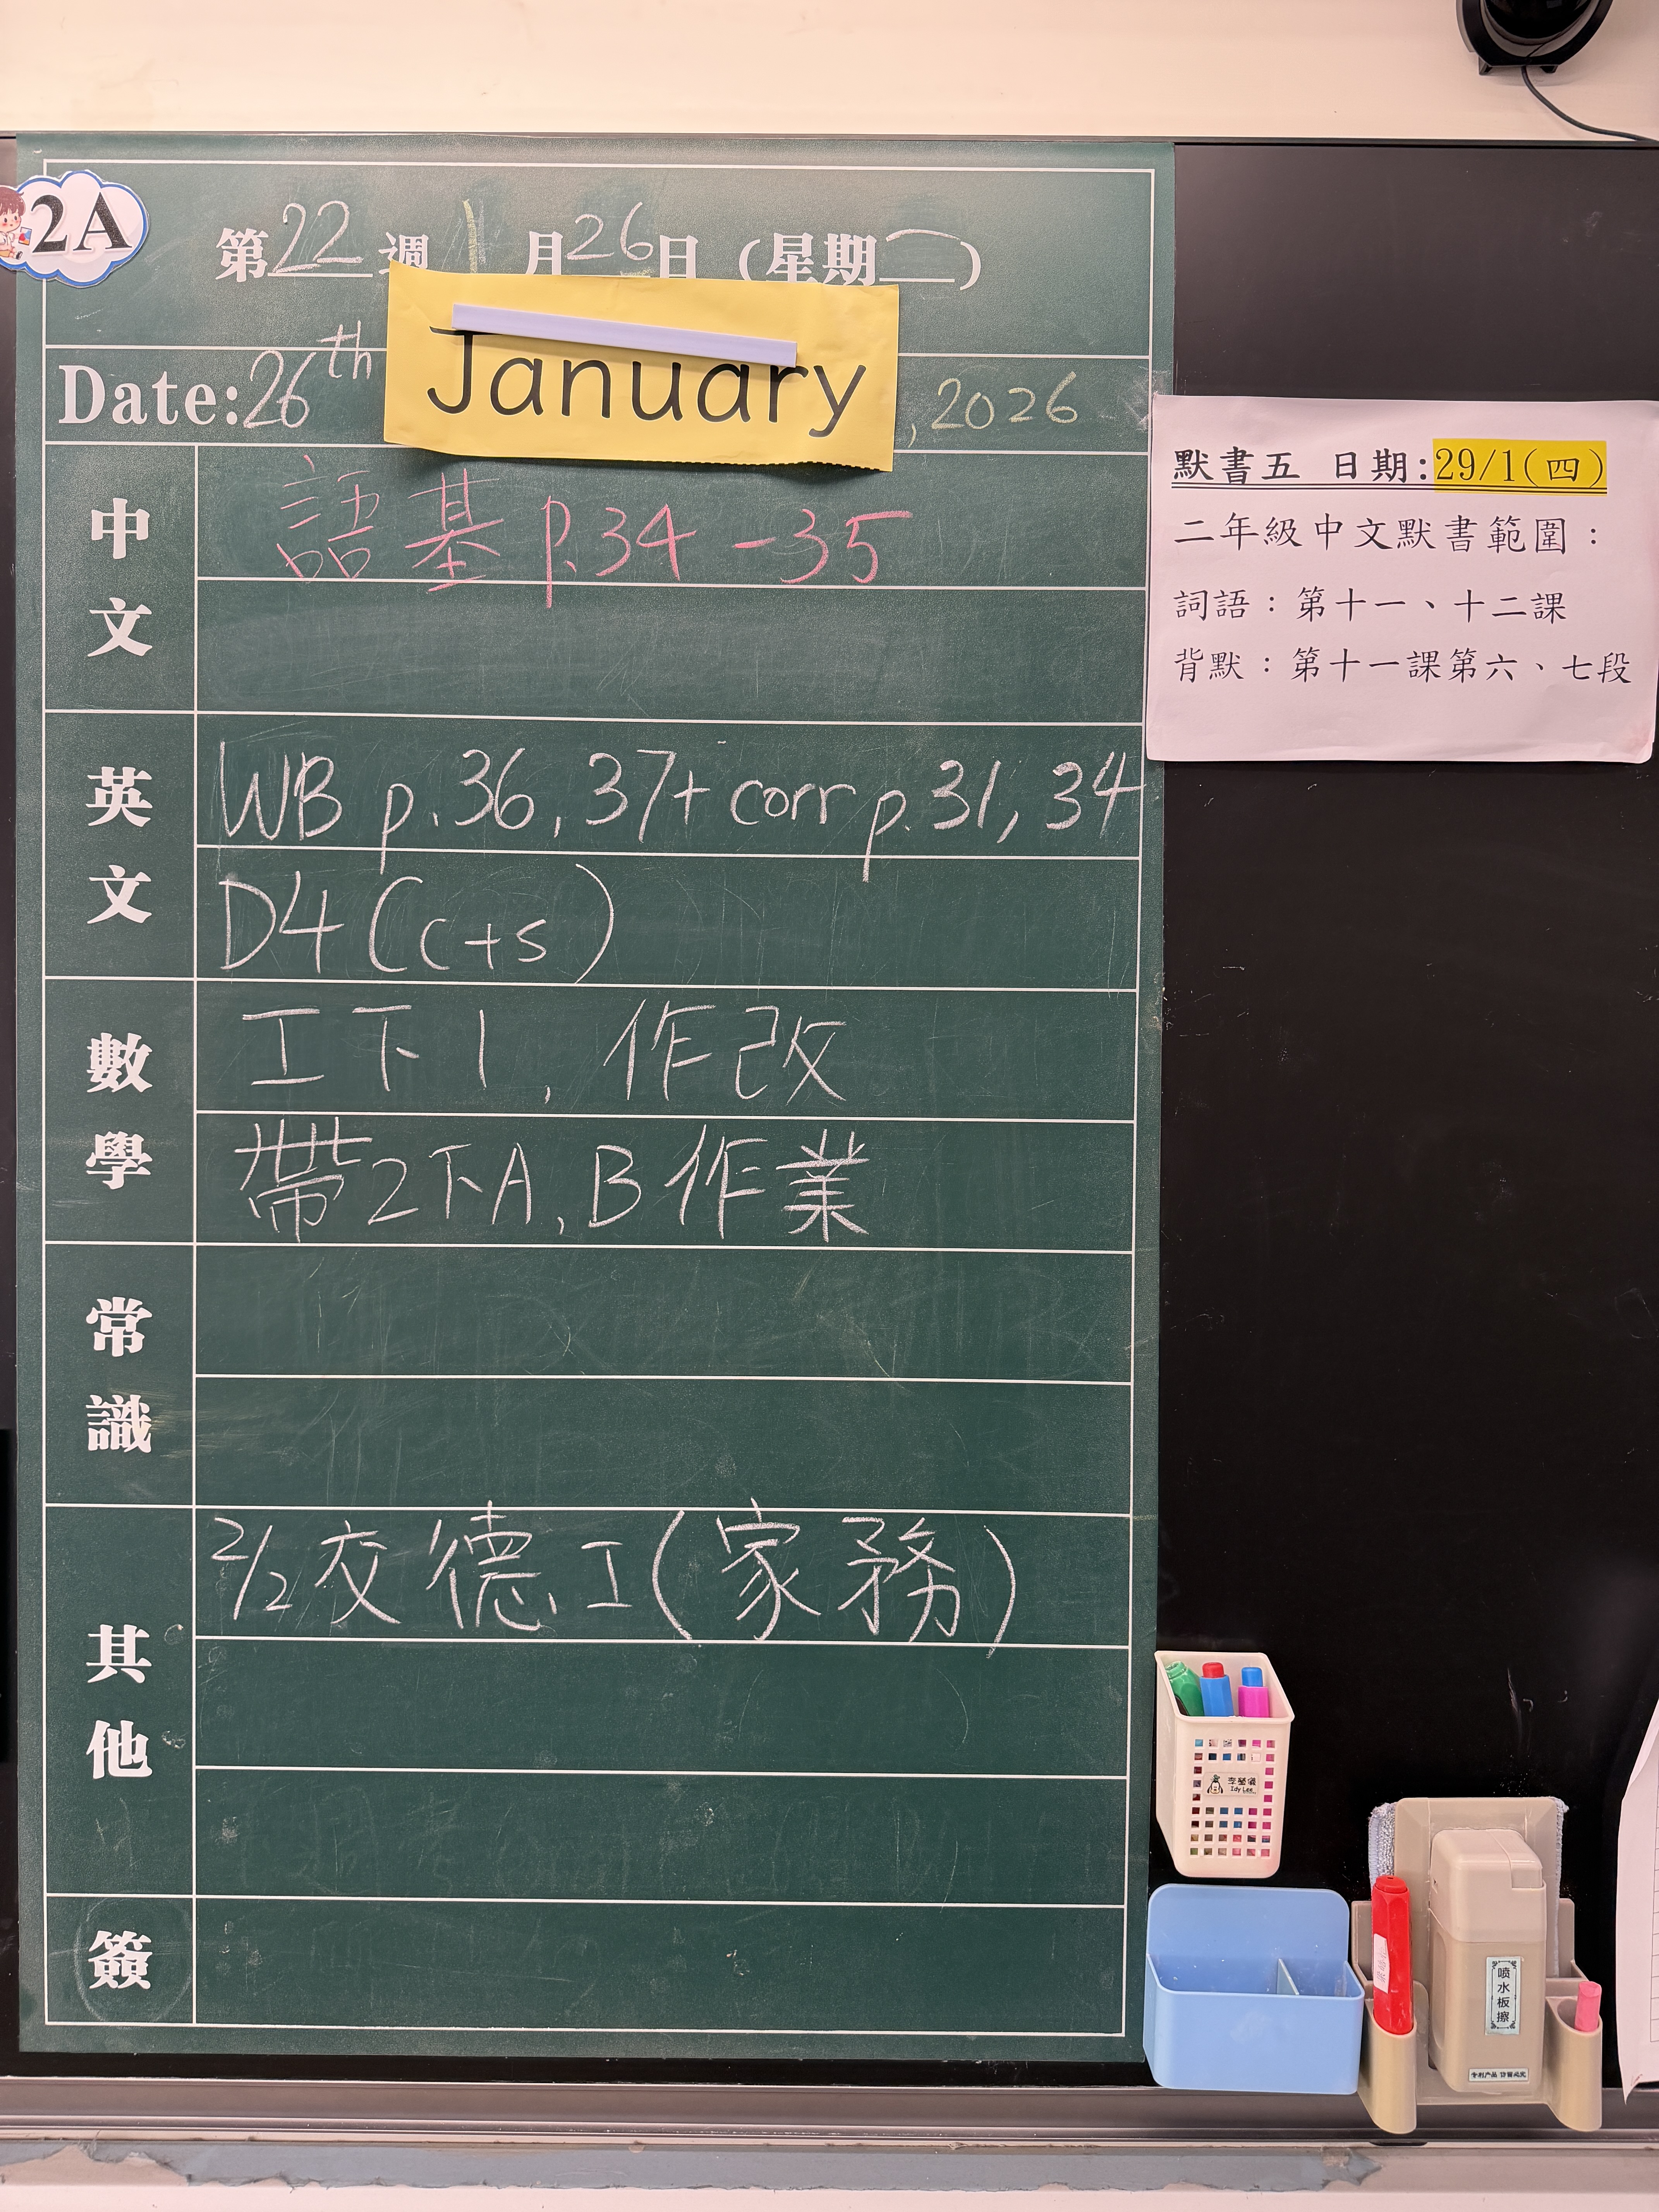 2A
第22週 1月26日（星期一）
Date: 26th January, 2026
中文
語基 p.34-35
英文
WB p.36, 37+ corr p.31, 34
D4 (c+s)
數學
工下1, 作改
帶2下A, B作業
常識
其他
2/2交德工(家務)
簽
默書五 日期:29/1(四)
二年級中文默書範圍：
詞語：第十一、十二課
背默：第十一課第六、七段
李瑩儀
Idy Lee
喷水板擦
专利产品 仿冒必究